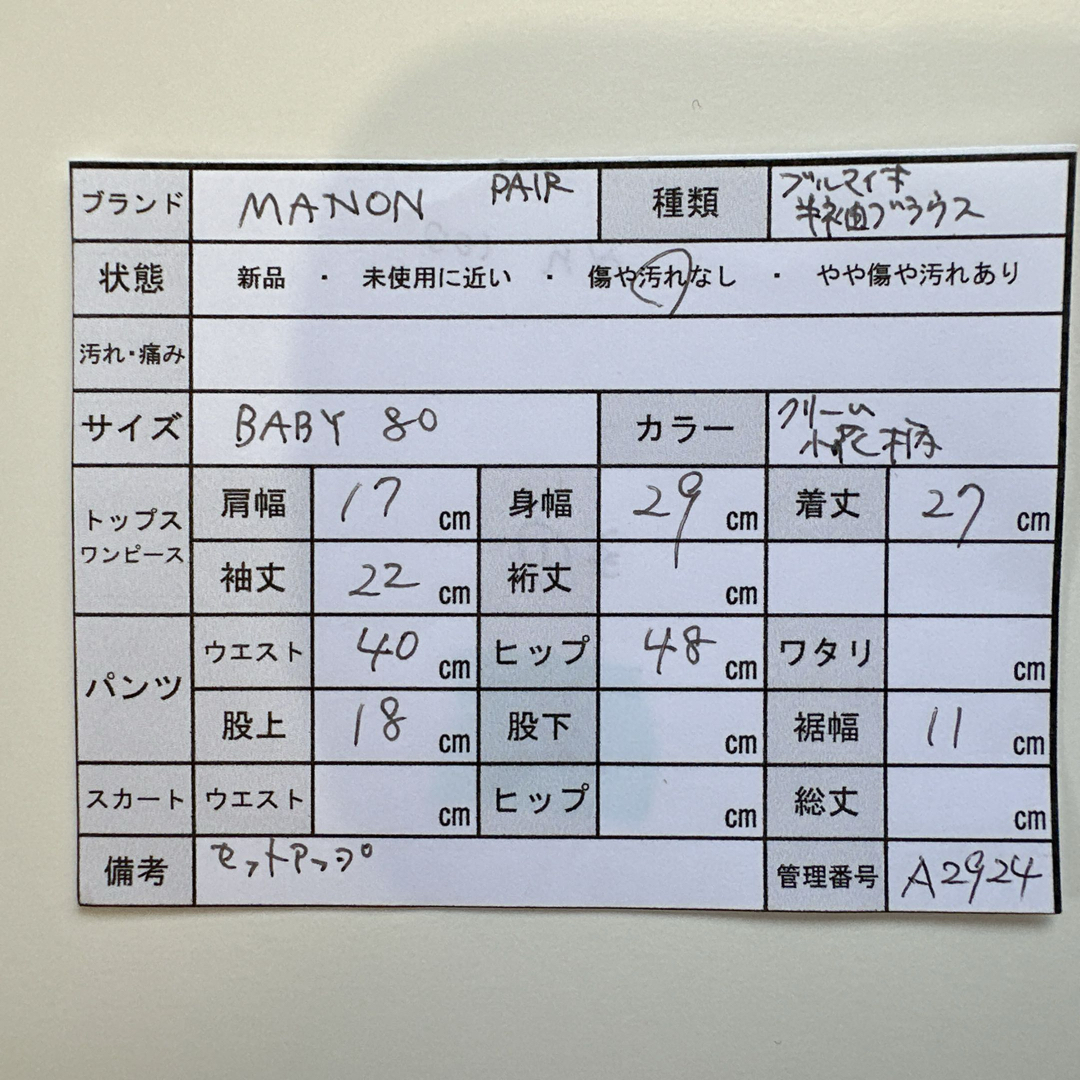 ブランド MANON PAIR 種類 ブルマイキ
半袖ブラウス
状態 新品 ・ 未使用に近い ・ 傷や汚れなし ・ やや傷や汚れあり
汚れ・痛み
サイズ BABY 80 カラー クリーム
小花柄
トップス
ワンピース
肩幅 17 cm 身幅 29 cm 着丈 27 cm
袖丈 22 cm 裄丈 cm
パンツ
ウエスト 40 cm ヒップ 48 cm ワタリ cm
股上 18 cm 股下 cm 裾幅 11 cm
スカート ウエスト cm ヒップ cm 総丈 cm
備考 セットアップ 管理番号 A2924